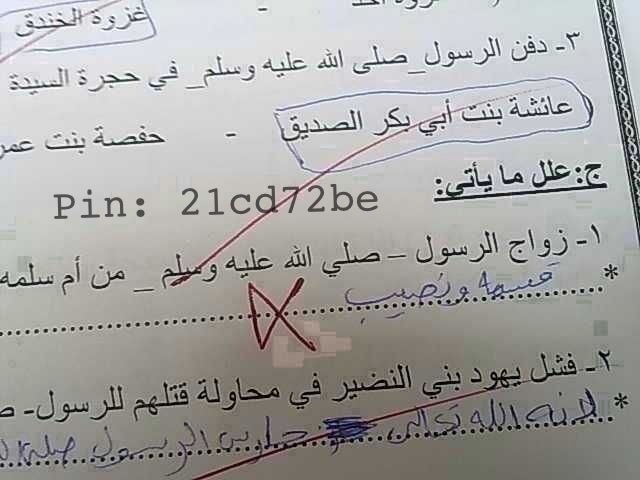 غزوة الخندق -
٣- دفن الرسول_ صلى الله عليه وسلم_ في حجرة السيدة
عائشة بنت أبي بكر الصديق - حفصة بنت عمر
ج: علل ما يأتي:
Pin: 21cd72be
١- زواج الرسول – صلي الله عليه وسلم _ من أم سلمه
* قسمة ونصيب
٢- فشل يهود بني النضير في محاولة قتلهم للرسول-
* لانه الله تعالى الرسول